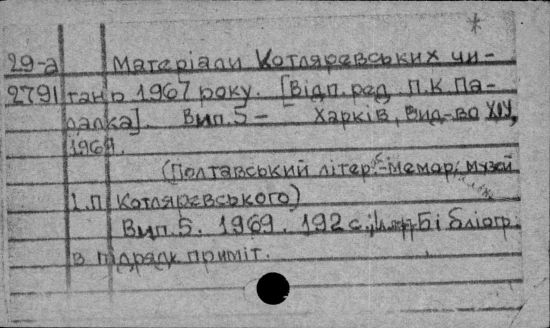 *
29-а Матеріали Котляревських чи-
2791 тань 1967 року. [Відп. ред. П.К. Па-
далка]. Вип. 5 – Харків, Вид-во ХДУ,
1969.
(Полтавський літер.-мемор. музей
І.П. Котляревського)
Вип. 5. 1969. 192 с.; Бібліогр.
в підрядк. приміт.